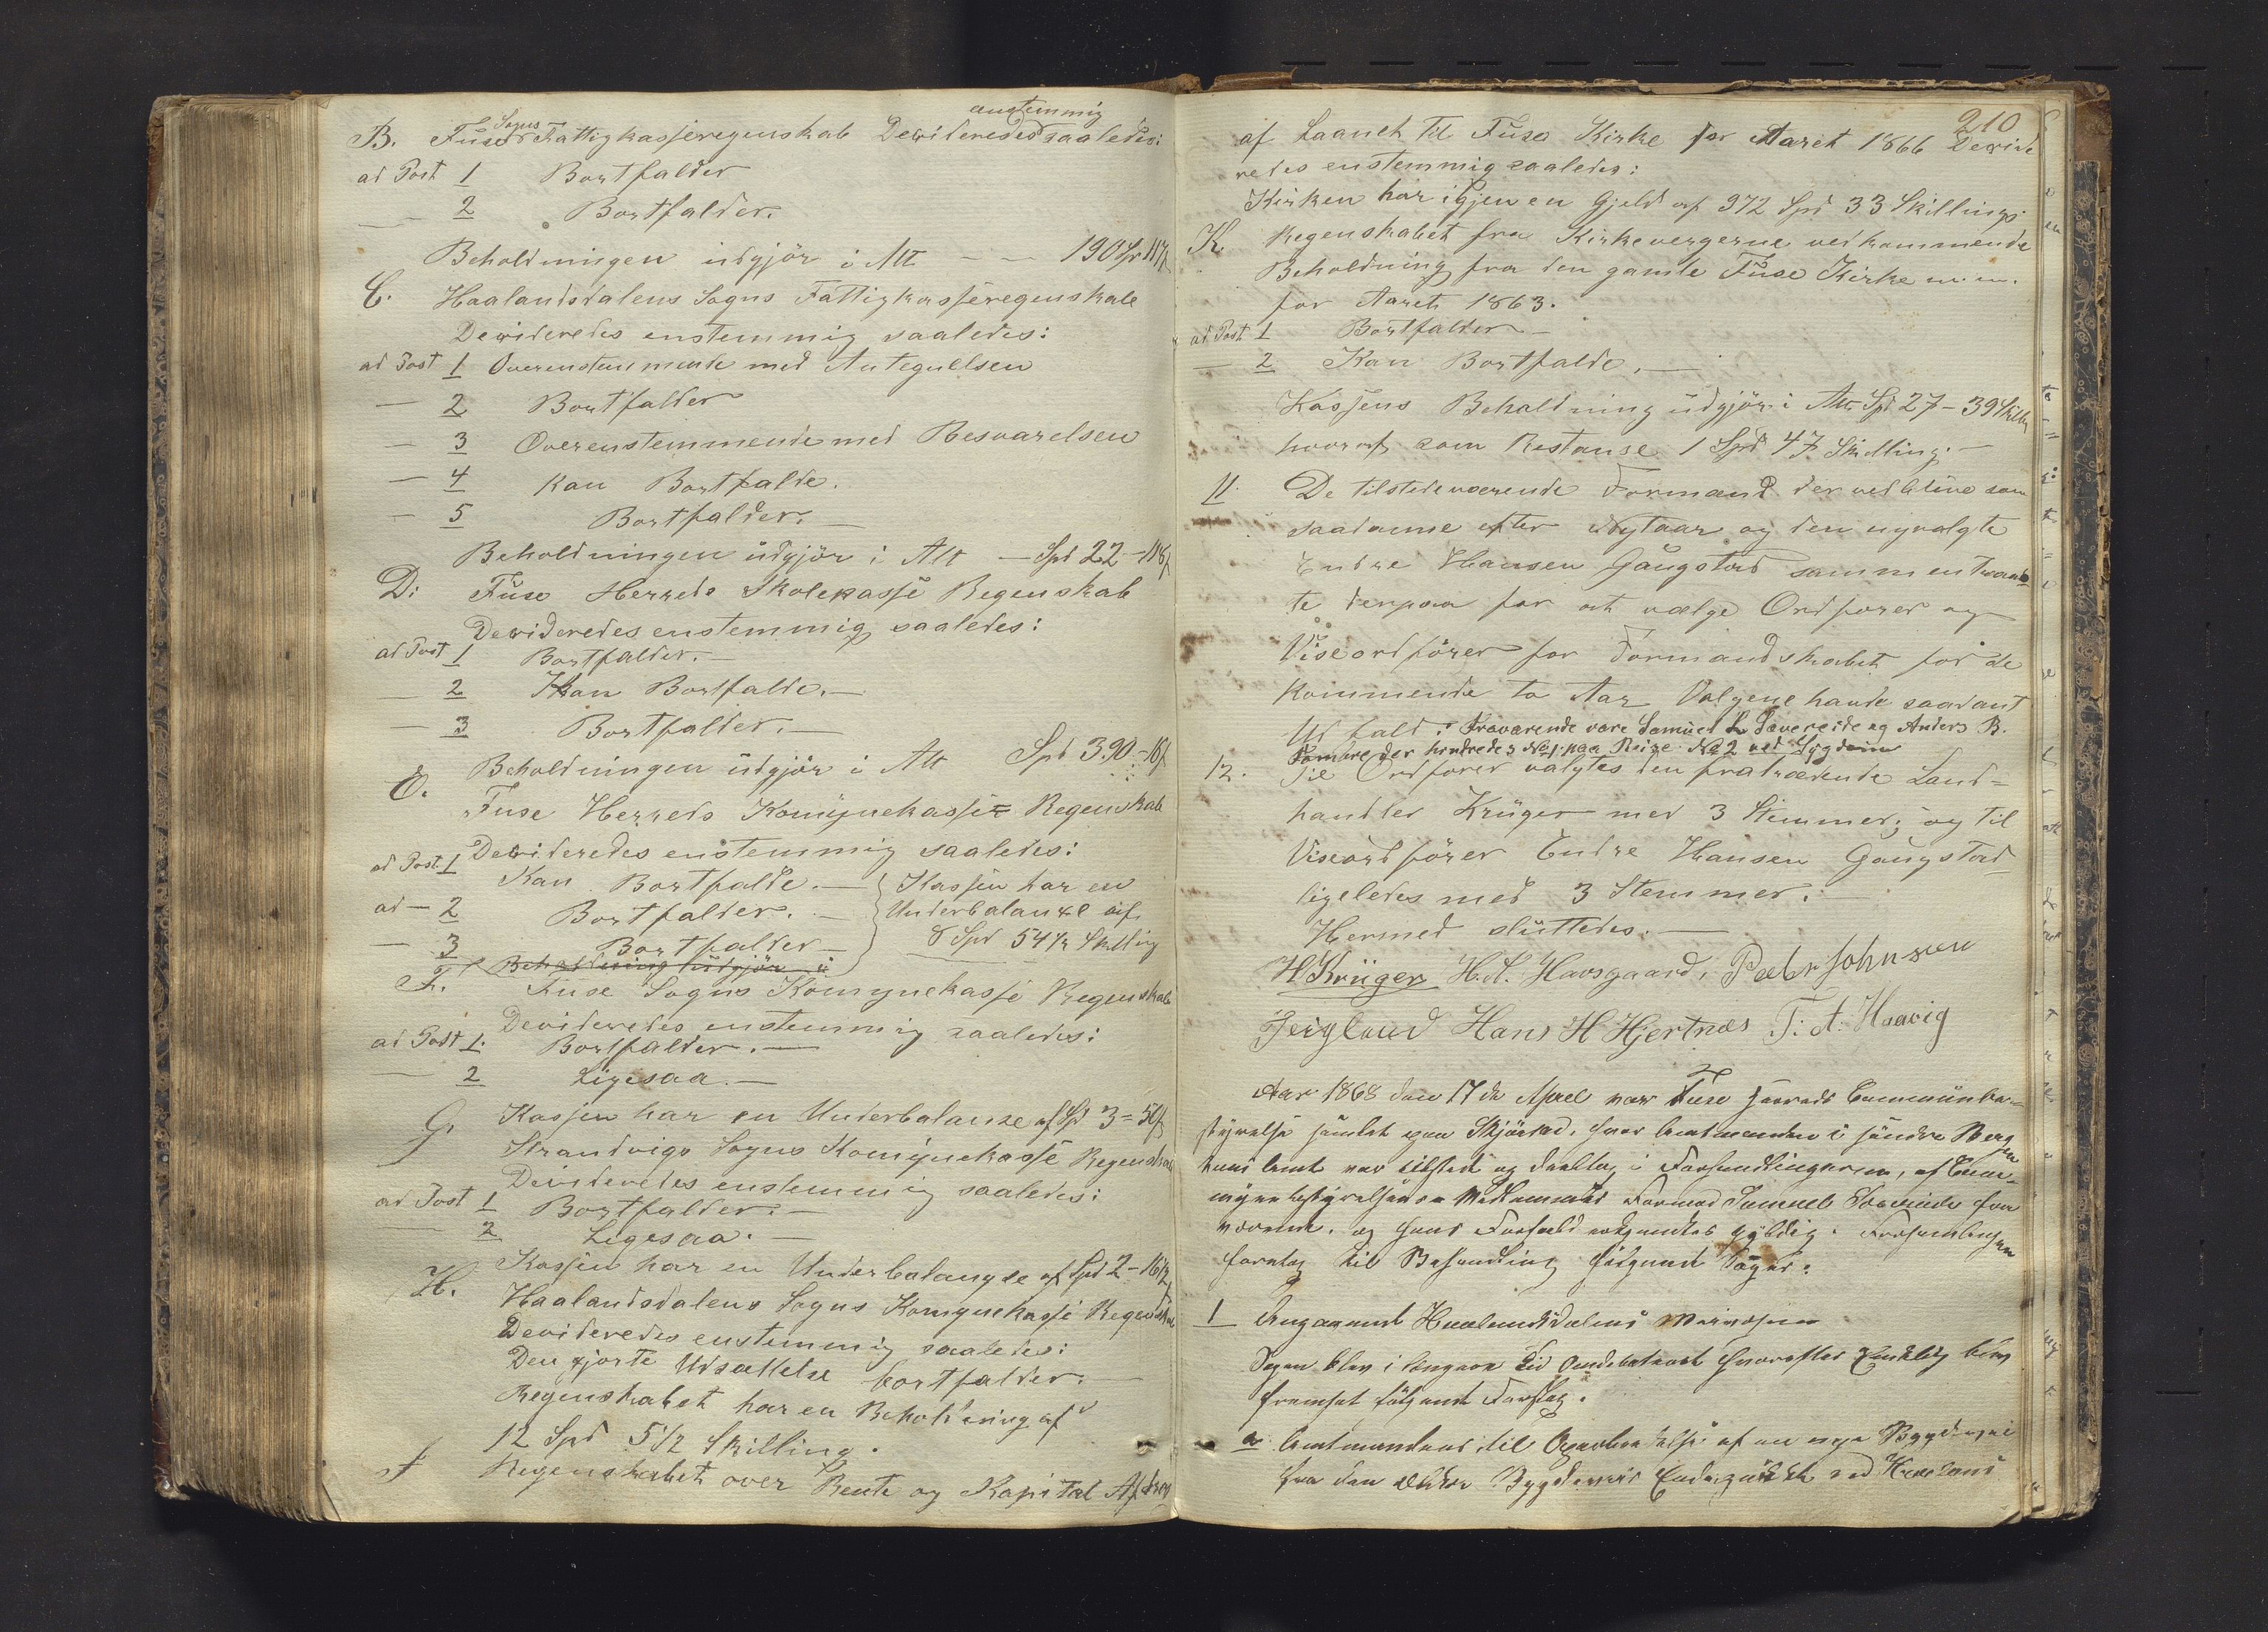 B. Fuse Sogns Fattigkasseregenskab Desideredes enstemmig saaledes:
ad Post 1 Bortfalder
— 2 Bortfalder.
Beholdningen udgjör i Alt — — 190 Spd
C. Haalandsdalens Sogns Fattigkasseregenskab
Desideredes enstemmig saaledes:
ad Post 1 Overenstemmende med Antegnelsen
— 2 Bortfalder
— 3 Overenstemmende med Besvarelsen
— 4 Kan Bortfalde.
— 5 Bortfalder. —
Beholdningen udgjör i Alt — Spd 22-118
D: Fuse Herreds Skolekasse Regenskab
Desideredes enstemmig saaledes:
ad Post 1 Bortfalder. —
— 2 Kan Bortfalde. —
— 3 Bortfalder. —
Beholdningen udgjör i Alt Spd 390-16
E. Fuse Herreds Komynekasse Regenskab
Desideredes enstemmig saaledes:
ad Post 1 Kan Bortfalde. — Kassen har en
ad — 2 Bortfalder. — Underbalanse af
— 3 Bortfalder — 8 Spd 54½ Skilling
Beholdning udgjör i
F. Fuse Sogns Komynekasse Regenskab
Desideredes enstemmig saaledes:
ad Post 1. Bortfalder. —
— 2 Ligesaa. —
Kassen har en Underbalanse af Sp 3=50
G. Strandvigs Sogns Komynekasse Regenskab
Desideredes enstemmig saaledes:
ad Post 1 Bortfalder. —
— 2 Ligesaa. —
Kassen har en Underbalangse af Spd 2-16½
H. Haalandsdalens Sogns Komynekasse Regenskab
Desideredes enstemmig saaledes:
Den gjorte Udsættelse bortfalder. —
Regenskabet har en Beholdning af
12 Spd 5½ Skilling.
Regenskabet over Rente og Kapital Afdrag
210
af Laanet til Fuse Kirke for Aaret 1866 Deside
redes enstemmig saaledes:
Kirken har igjen en Gjeld af 972 Spd 33 Skillings
K. Regenskabet fra Kirkevergerne vedkommende
Beholdning fra den gamle Fuse Kirke m.m.
for Aaret 1863.
ad Post 1 Bortfalder —
— 2 Kan Bortfalde. —
Kassens Beholdning udgjör i Alt Spd 27-39 Skill
hvoraf som Restanse 1 Spd 47 Skilling. —
11. De tilstedeværende Formænd der vedblive som
saadanne efter Nytaar og den nyvalgte
Endre Hansen Gaugstad sammentraad=
te derpaa for at vælge Ordförer og
Viseordförer for Formandskabet for de
kommende to Aar Valgene havde saadant
Udfald: Fraværende vare Samuel L Sævereide og Anders B.
Bombre der hindredes No 1 paa Reise No 2 ved Sygdom
12. Til Ordförer valgtes den fratrædende Land=
handler Krüger med 3 Stemmer; og til
Viseordförer Endre Hansen Gaugstad
ligeledes med 3 Stemmer. —
Hermed sluttedes. —
H Krüger H.A. Havsgaard. Peder Johnsen
Teigland Hans H Hjertnæs T. A. Haavig
Aar 1868 den 17de April var Fuse Herreds Communbe=
styrelse samlet paa Skjörsad, hvor Amtmanden i söndre Bergen
huus Amt var tilstede og deeltog i Forhandlingerne, af Com=
mynebestyrelsens Medlemmer Formand Samuel Sævereide fra
værende, og hans Forfald erkjendtes gyldig. Forsamlingen
foretog til Behandling følgende Sager:
1 Angaaende Haalandsdalens Veivæsen
Sagen blev i længere Tid omdebateret hvorefter Endelig blev
fremsat følgende Forslag.
a Amtmandens til Oparbeidelse af en nye Bygdevei
fra den ældre Bygdeveis Endepunkt ved Haaland